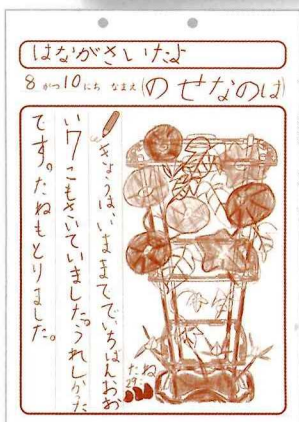 はながさいたよ
8がつ10にち なまえ(のせなのは)
きょうは、いままででいちばんおお
い7こもさいていました。うれしかった
です。たねもとりました。
たね
29こ